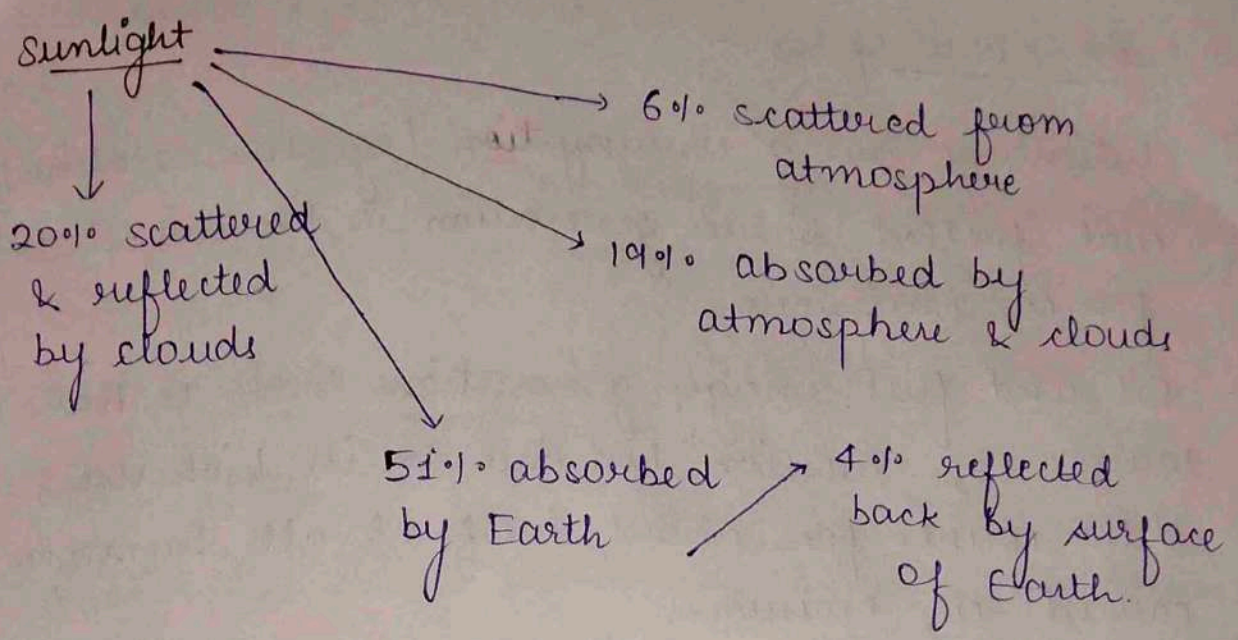 Sunlight
6% scattered from
atmosphere
20% scattered
& reflected
by clouds
19% absorbed by
atmosphere & clouds
51% absorbed
by Earth
4% reflected
back by surface
of Earth.